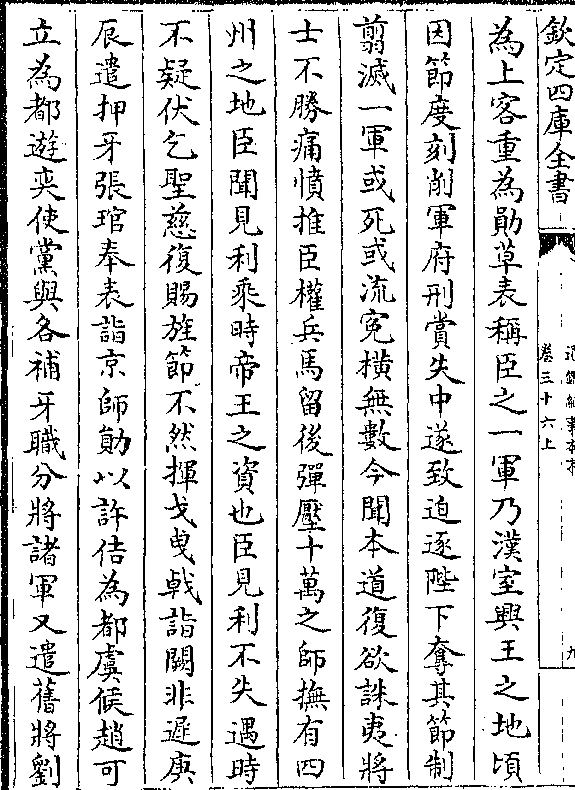 欽定四庫全書
通鑑紀事本末
卷三十六上
九
為上客重為勛草表稱臣之一軍乃漢室興王之地頃
因節度刻削軍府刑賞失中遂致迫逐陛下奪其節制
翦滅一軍或死或流寃橫無數今聞本道復欲誅夷將
士不勝痛憤推臣權兵馬留後彈壓十萬之師撫有四
州之地臣聞見利乘時帝王之資也臣見利不失遇時
不疑伏乞聖慈復賜旌節不然揮戈曳戟詣闕非遲庚
辰遣押牙張琯奉表詣京師勛以許佶為都虞候趙可
立為都遊奕使黨與各補牙職分將諸軍又遣舊將劉